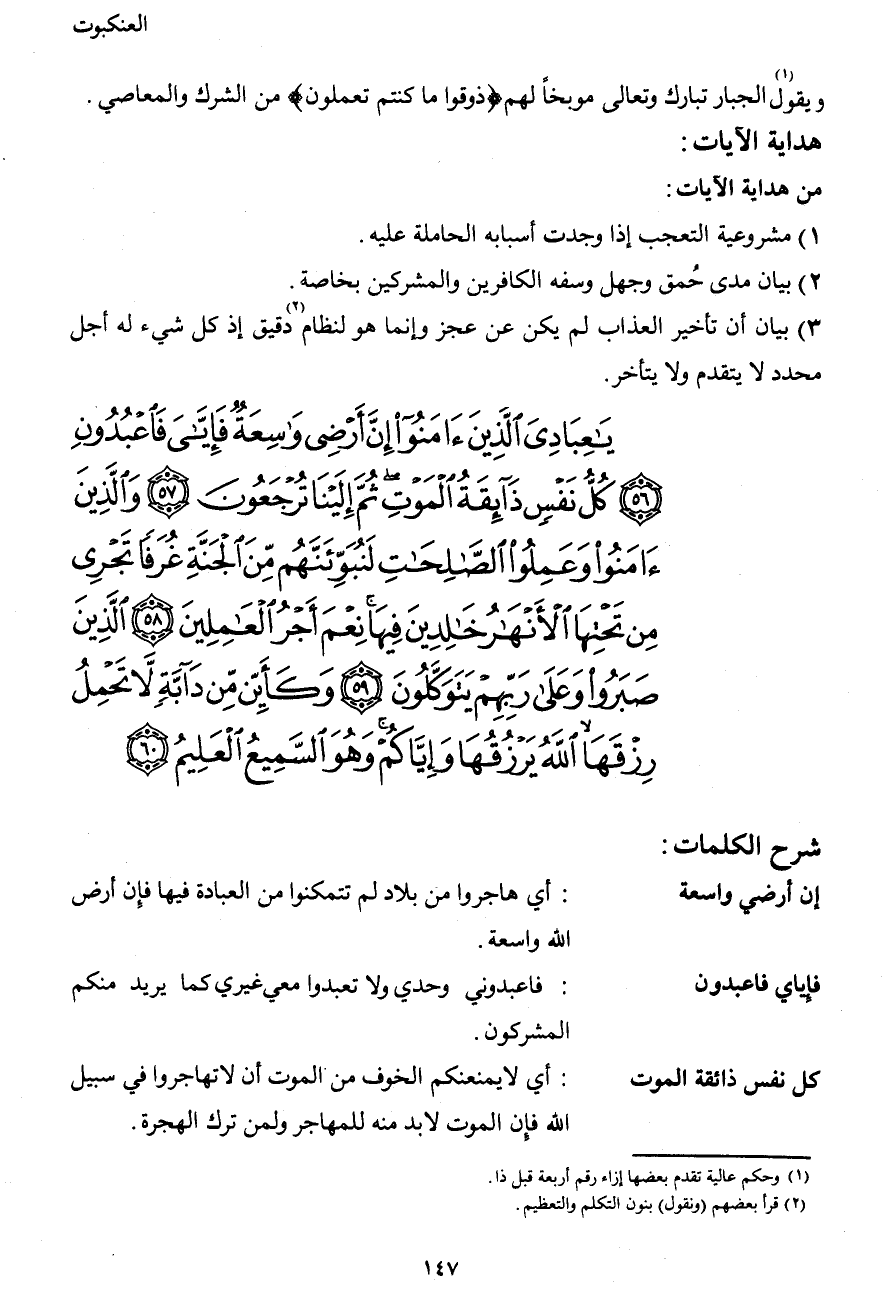 العنكبوت
ويقول(١) الجبار تبارك وتعالى موبخاً لهم ﴿ذوقوا ما كنتم تعملون﴾ من الشرك والمعاصي .
هداية الآيات :
من هداية الآيات :
١) مشروعية التعجب إذا وجدت أسبابه الحاملة عليه .
٢) بيان مدى حُمق وجهل وسفه الكافرين والمشركين بخاصة .
٣) بيان أن تأخير العذاب لم يكن عن عجز وإنما هو لنظام(٢) دقيق إذ كل شيء له أجل
محدد لا يتقدم ولا يتأخر .
يَـٰعِبَادِىَ ٱلَّذِينَ ءَامَنُوٓا۟ إِنَّ أَرْضِى وَٰسِعَةٌ فَإِيَّـٰىَ فَٱعْبُدُونِ
٥٦ كُلُّ نَفْسٍ ذَآئِقَةُ ٱلْمَوْتِ ۖ ثُمَّ إِلَيْنَا تُرْجَعُونَ ٥٧ وَٱلَّذِينَ
ءَامَنُوا۟ وَعَمِلُوا۟ ٱلصَّـٰلِحَـٰتِ لَنُبَوِّئَنَّهُم مِّنَ ٱلْجَنَّةِ غُرَفًا تَجْرِى
مِن تَحْتِهَا ٱلْأَنْهَـٰرُ خَـٰلِدِينَ فِيهَا ۚ نِعْمَ أَجْرُ ٱلْعَـٰمِلِينَ ٥٨ ٱلَّذِينَ
صَبَرُوا۟ وَعَلَىٰ رَبِّهِمْ يَتَوَكَّلُونَ ٥٩ وَكَأَيِّن مِّن دَآبَّةٍ لَّا تَحْمِلُ
رِزْقَهَا ٱللَّهُ يَرْزُقُهَا وَإِيَّاكُمْ ۚ وَهُوَ ٱلسَّمِيعُ ٱلْعَلِيمُ ٦٠
شرح الكلمات :
إن أرضي واسعة : أي هاجروا من بلاد لم تتمكنوا من العبادة فيها فإن أرض
الله واسعة .
فإياي فاعبدون : فاعبدوني وحدي ولا تعبدوا معي غيري كما يريد منكم
المشركون .
كل نفس ذائقة الموت : أي لا يمنعنكم الخوف من الموت أن لا تهاجروا في سبيل
الله فإن الموت لابد منه للمهاجر ولمن ترك الهجرة .
(١) وحكم عالية تقدم بعضها إزاء رقم أربعة قبل ذا .
(٢) قرأ بعضهم (ونقول) بنون التكلم والتعظيم .
١٤٧